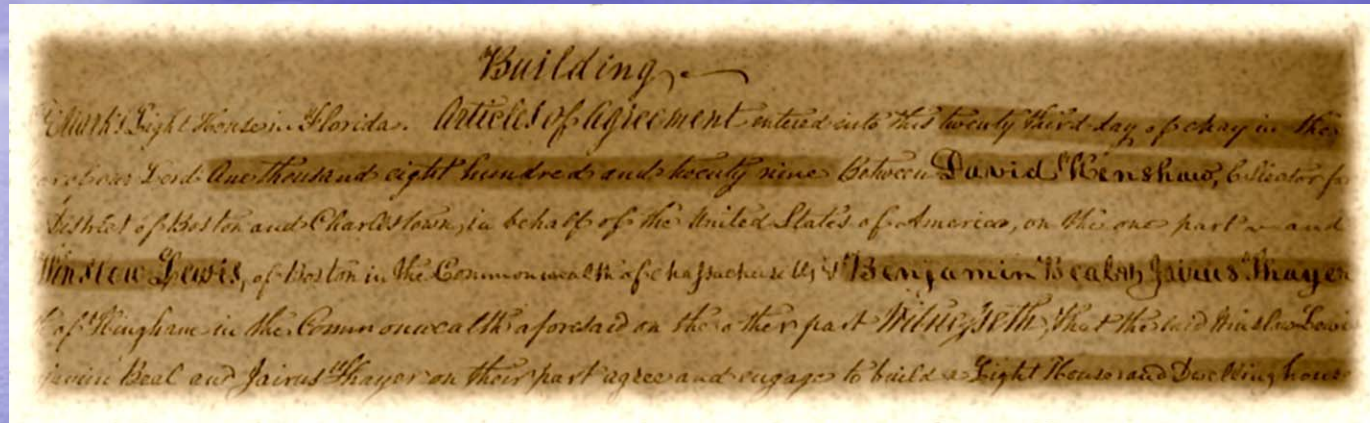 Building
St Marks Light House in Florida. Articles of Agreement entered into this twenty third day of May in the
of our Lord One thousand eight hundred and twenty nine Between David Henshaw, Collector for
District of Boston and Charlestown, in behalf of the United States of America, on the one part and
Winslow Lewis, of Boston in the Commonwealth of Massachusetts, & Benjamin Beal & Jairus Thayer
of Hingham in the Commonwealth aforesaid on the other part Witnesseth, that the said Winslow Lewis
Beal and Jairus Thayer on their part agree and engage to build a Light House and Dwelling house